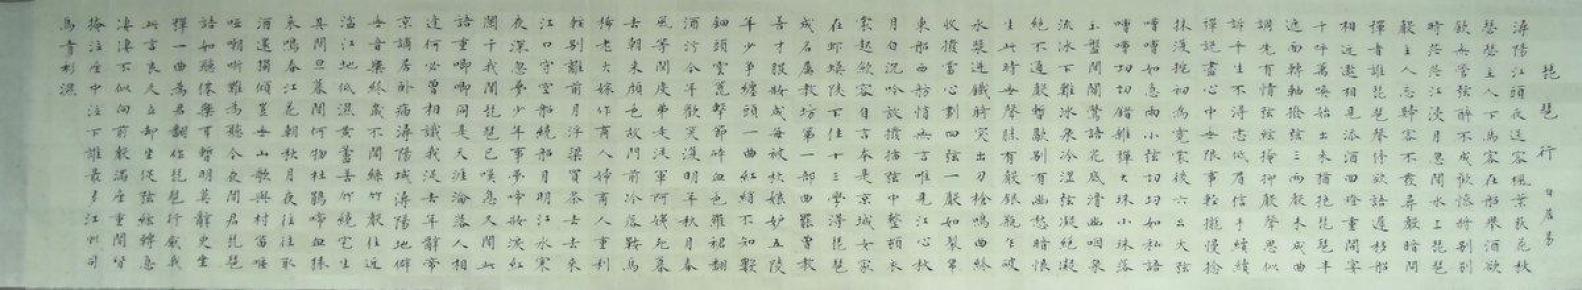 琵琶行 白居易
潯陽江頭夜送客楓葉荻花秋
瑟瑟主人下馬客在船舉酒欲
飲無管弦醉不成歡慘將別別
時茫茫江浸月忽聞水上琵琶
聲主人忘歸客不發尋聲暗問
彈者誰琵琶聲停欲語遲移船
相近邀相見添酒回燈重開宴
千呼萬喚始出來猶抱琵琶半
遮面轉軸撥弦三兩聲未成曲
調先有情弦弦掩抑聲聲思似
訴平生不得志低眉信手續續
彈說盡心中無限事輕攏慢撚
抹復挑初為霓裳後六么大弦
嘈嘈如急雨小弦切切如私語
嘈嘈切切錯雜彈大珠小珠落
玉盤間關鶯語花底滑幽咽泉
流冰下難冰泉冷澀弦凝絕凝
絕不通聲暫歇別有幽愁暗恨
生此時無聲勝有聲銀瓶乍破
水漿迸鐵騎突出刀槍鳴曲終
收撥當心劃四弦一聲如裂帛
東船西舫悄無言唯見江心秋
月白沉吟放撥插弦中整頓衣
裳起斂容自言本是京城女家
在蝦蟆陵下住十三學得琵琶
成名屬教坊第一部曲罷曾教
善才服妝成每被秋娘妒五陵
年少爭纏頭一曲紅綃不知數
鈿頭雲篦擊節碎血色羅裙翻
酒污今年歡笑復明年秋月春
風等閑度弟走從軍阿姨死暮
去朝來顏色故門前冷落鞍馬
稀老大嫁作商人婦商人重利
輕別離前月浮梁買茶去去來
江口守空船繞船明月江水寒
夜深忽夢少年事夢啼妝淚紅
闌干我聞琵琶已嘆息又聞此
語重唧唧同是天涯淪落人相
逢何必曾相識我從去年辭帝
京謫居臥病潯陽城潯陽地僻
無音樂終歲不聞絲竹聲住近
湓江地低濕黃蘆苦竹繞宅生
其間旦暮聞何物杜鵑啼血猿
哀鳴春江花朝秋月夜往往取
酒還獨傾豈無山歌與村笛嘔
啞嘲哳難為聽今夜聞君琵琶
語如聽仙樂耳暫明莫辭更坐
彈一曲為君翻作琵琶行感我
此言良久立卻坐促弦弦轉急
淒淒不似向前聲滿座重聞皆
掩泣座中泣下誰最多江州司
馬青衫濕